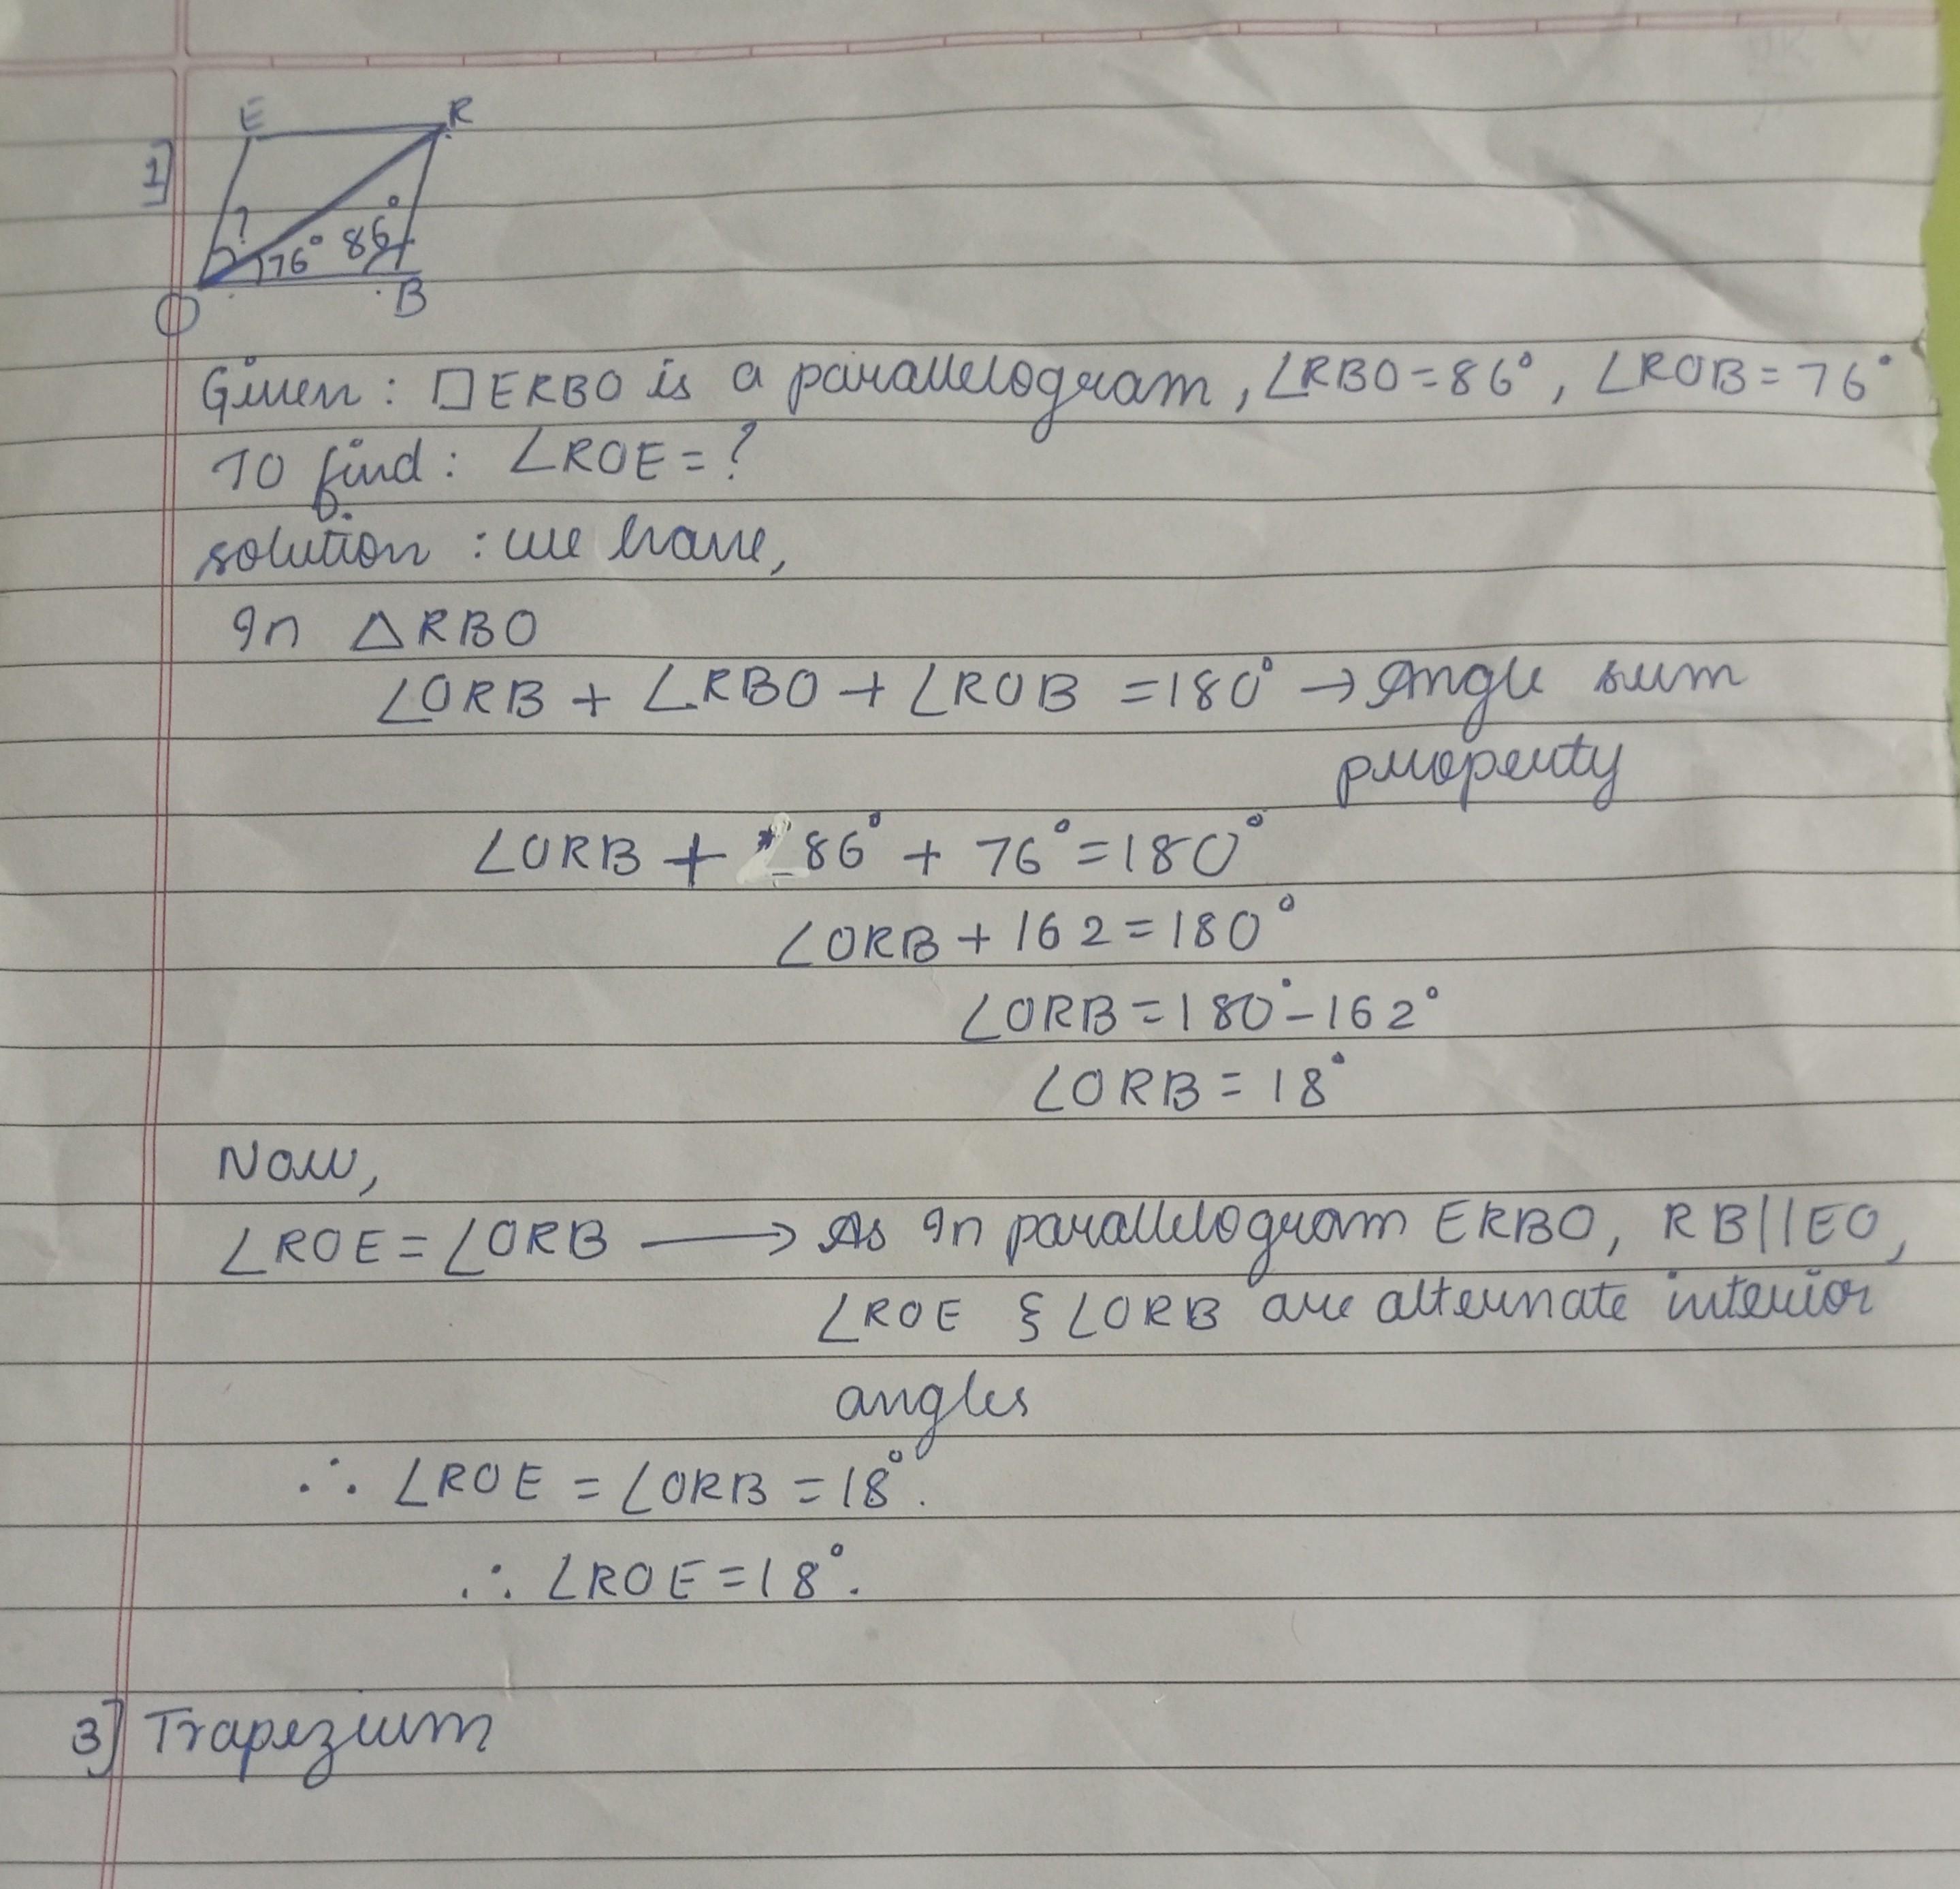 1]
E R
?
76° 86°
O B
Given : □ERBO is a parallelogram, ∠RBO=86°, ∠ROB=76°
To find : ∠ROE=?
solution : we have,
In △RBO
∠ORB + ∠RBO + ∠ROB = 180° → Angle sum
property
∠ORB + 86° + 76° = 180°
∠ORB + 162 = 180°
∠ORB = 180° - 162°
∠ORB = 18°
Now,
∠ROE = ∠ORB → As In parallelogram ERBO, RB||EO,
∠ROE & ∠ORB are alternate interior
angles
∴ ∠ROE = ∠ORB = 18°.
∴ ∠ROE = 18°.
3] Trapezium